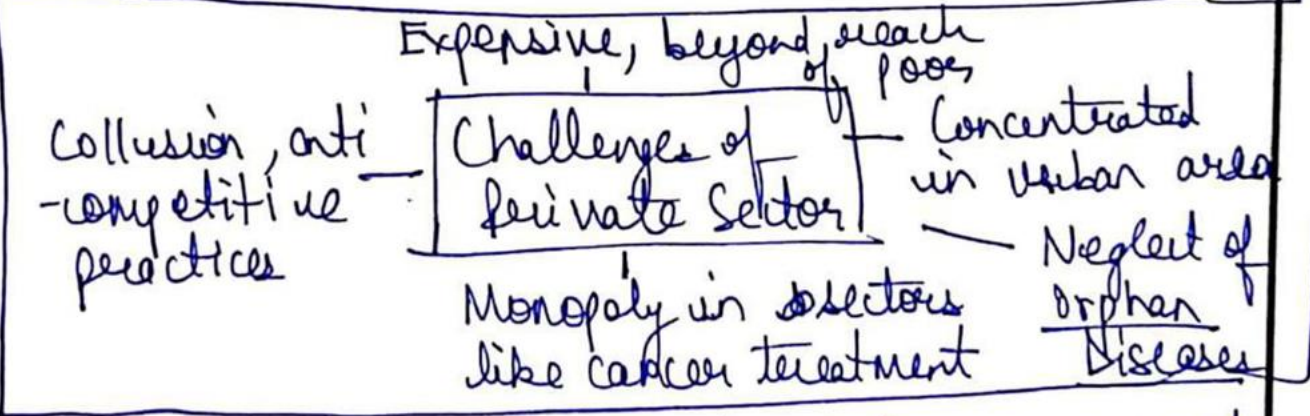 Expensive, beyond reach
of poor
Collusion, anti
-competitive
practices
Challenges of
Private Sector
Concentrated
in urban area
Neglect of
Orphan
Diseases
Monopoly in sectors
like cancer treatment